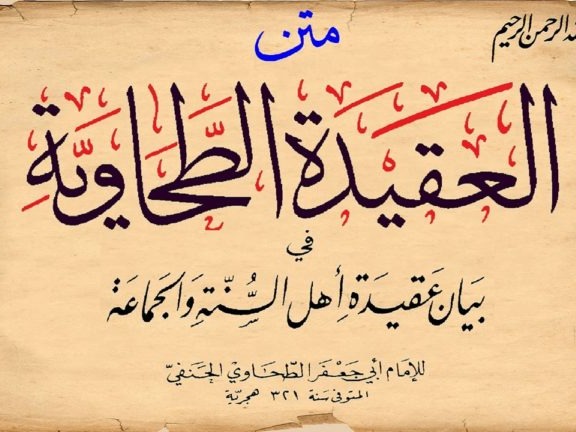 الله الرحمن الرحيم
متن
العَقِيدَةُ الطَّحَاوِيَّةِ
في
بَيَان عَقِيدَة أهل السُّنَّةِ وَالجَمَاعَة
للإمَام أبي جَعْفَر الطَّحَاوي الحَنَفيّ
المتوفى سَنَة ٣٢١ هجريَّة